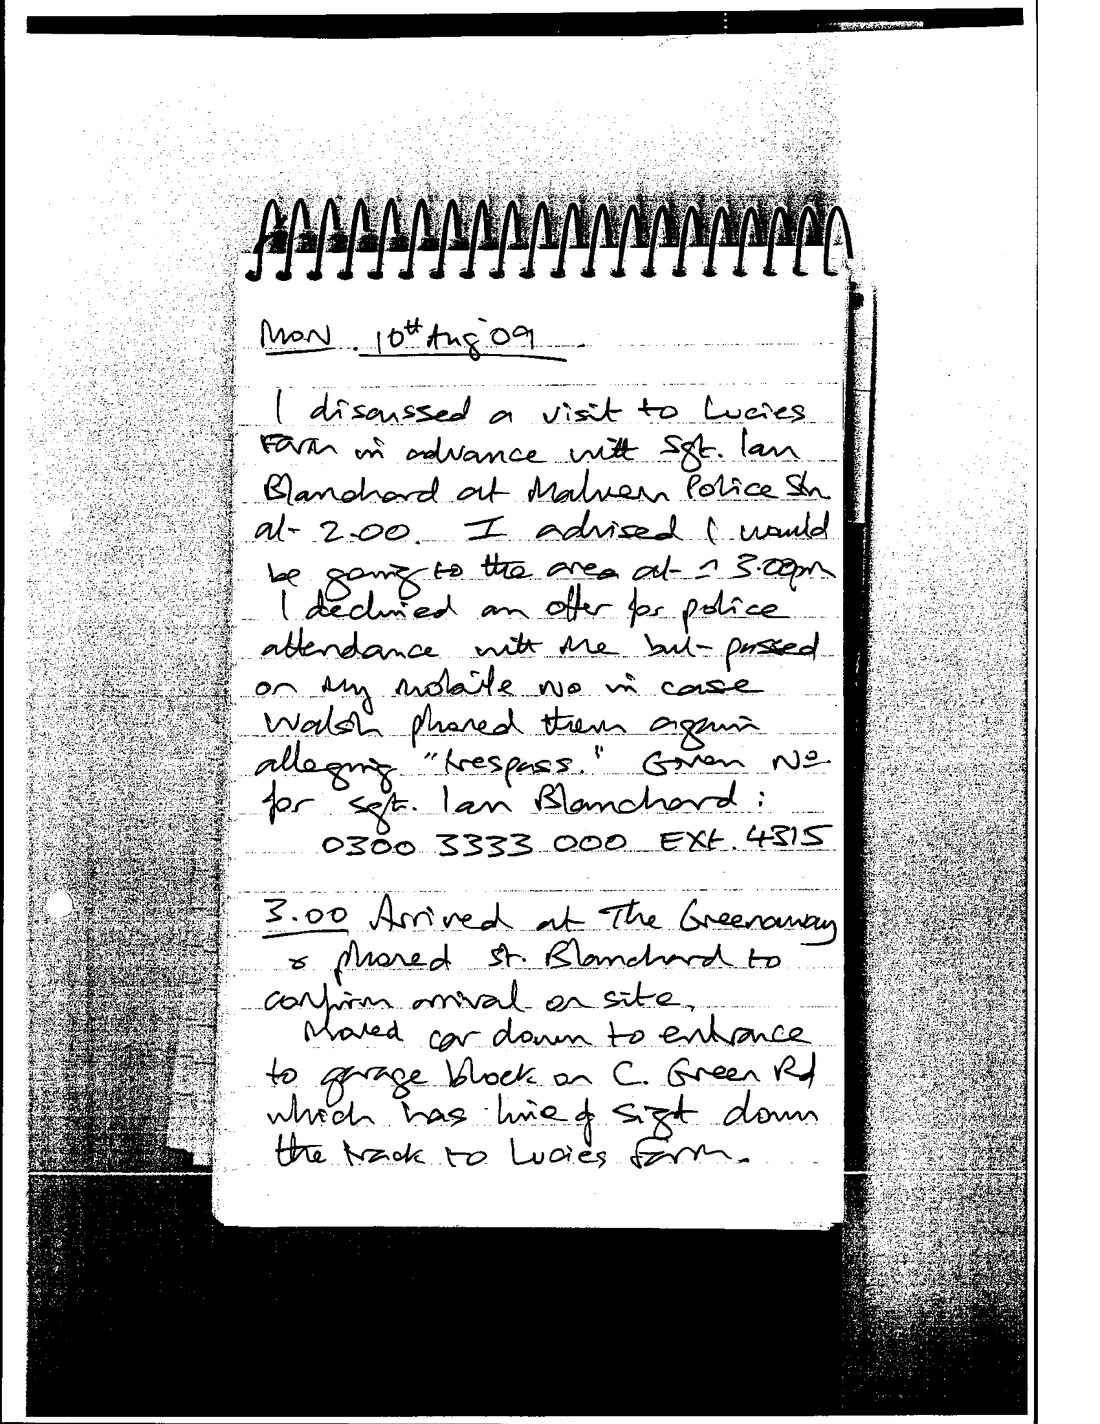 MON. 10th Aug '09
I discussed a visit to Lucies
Farm in advance with Sgt. Ian
Blanchard at Malvern Police Stn
at 2.00. I advised I would
be going to the area at 3.00pm
I declined an offer for police
attendance with me but passed
on my mobile No in case
Walsh phoned them again
alleging "trespass." Given No
for sgt. Ian Blanchard:
0300 3333 000 EXt. 4315
3.00 Arrived at The Greenaway
& phoned St. Blanchard to
confirm arrival on site.
Moved car down to entrance
to garage block on C. Green Rd
which has line of sight down
the track to Lucies Farm.